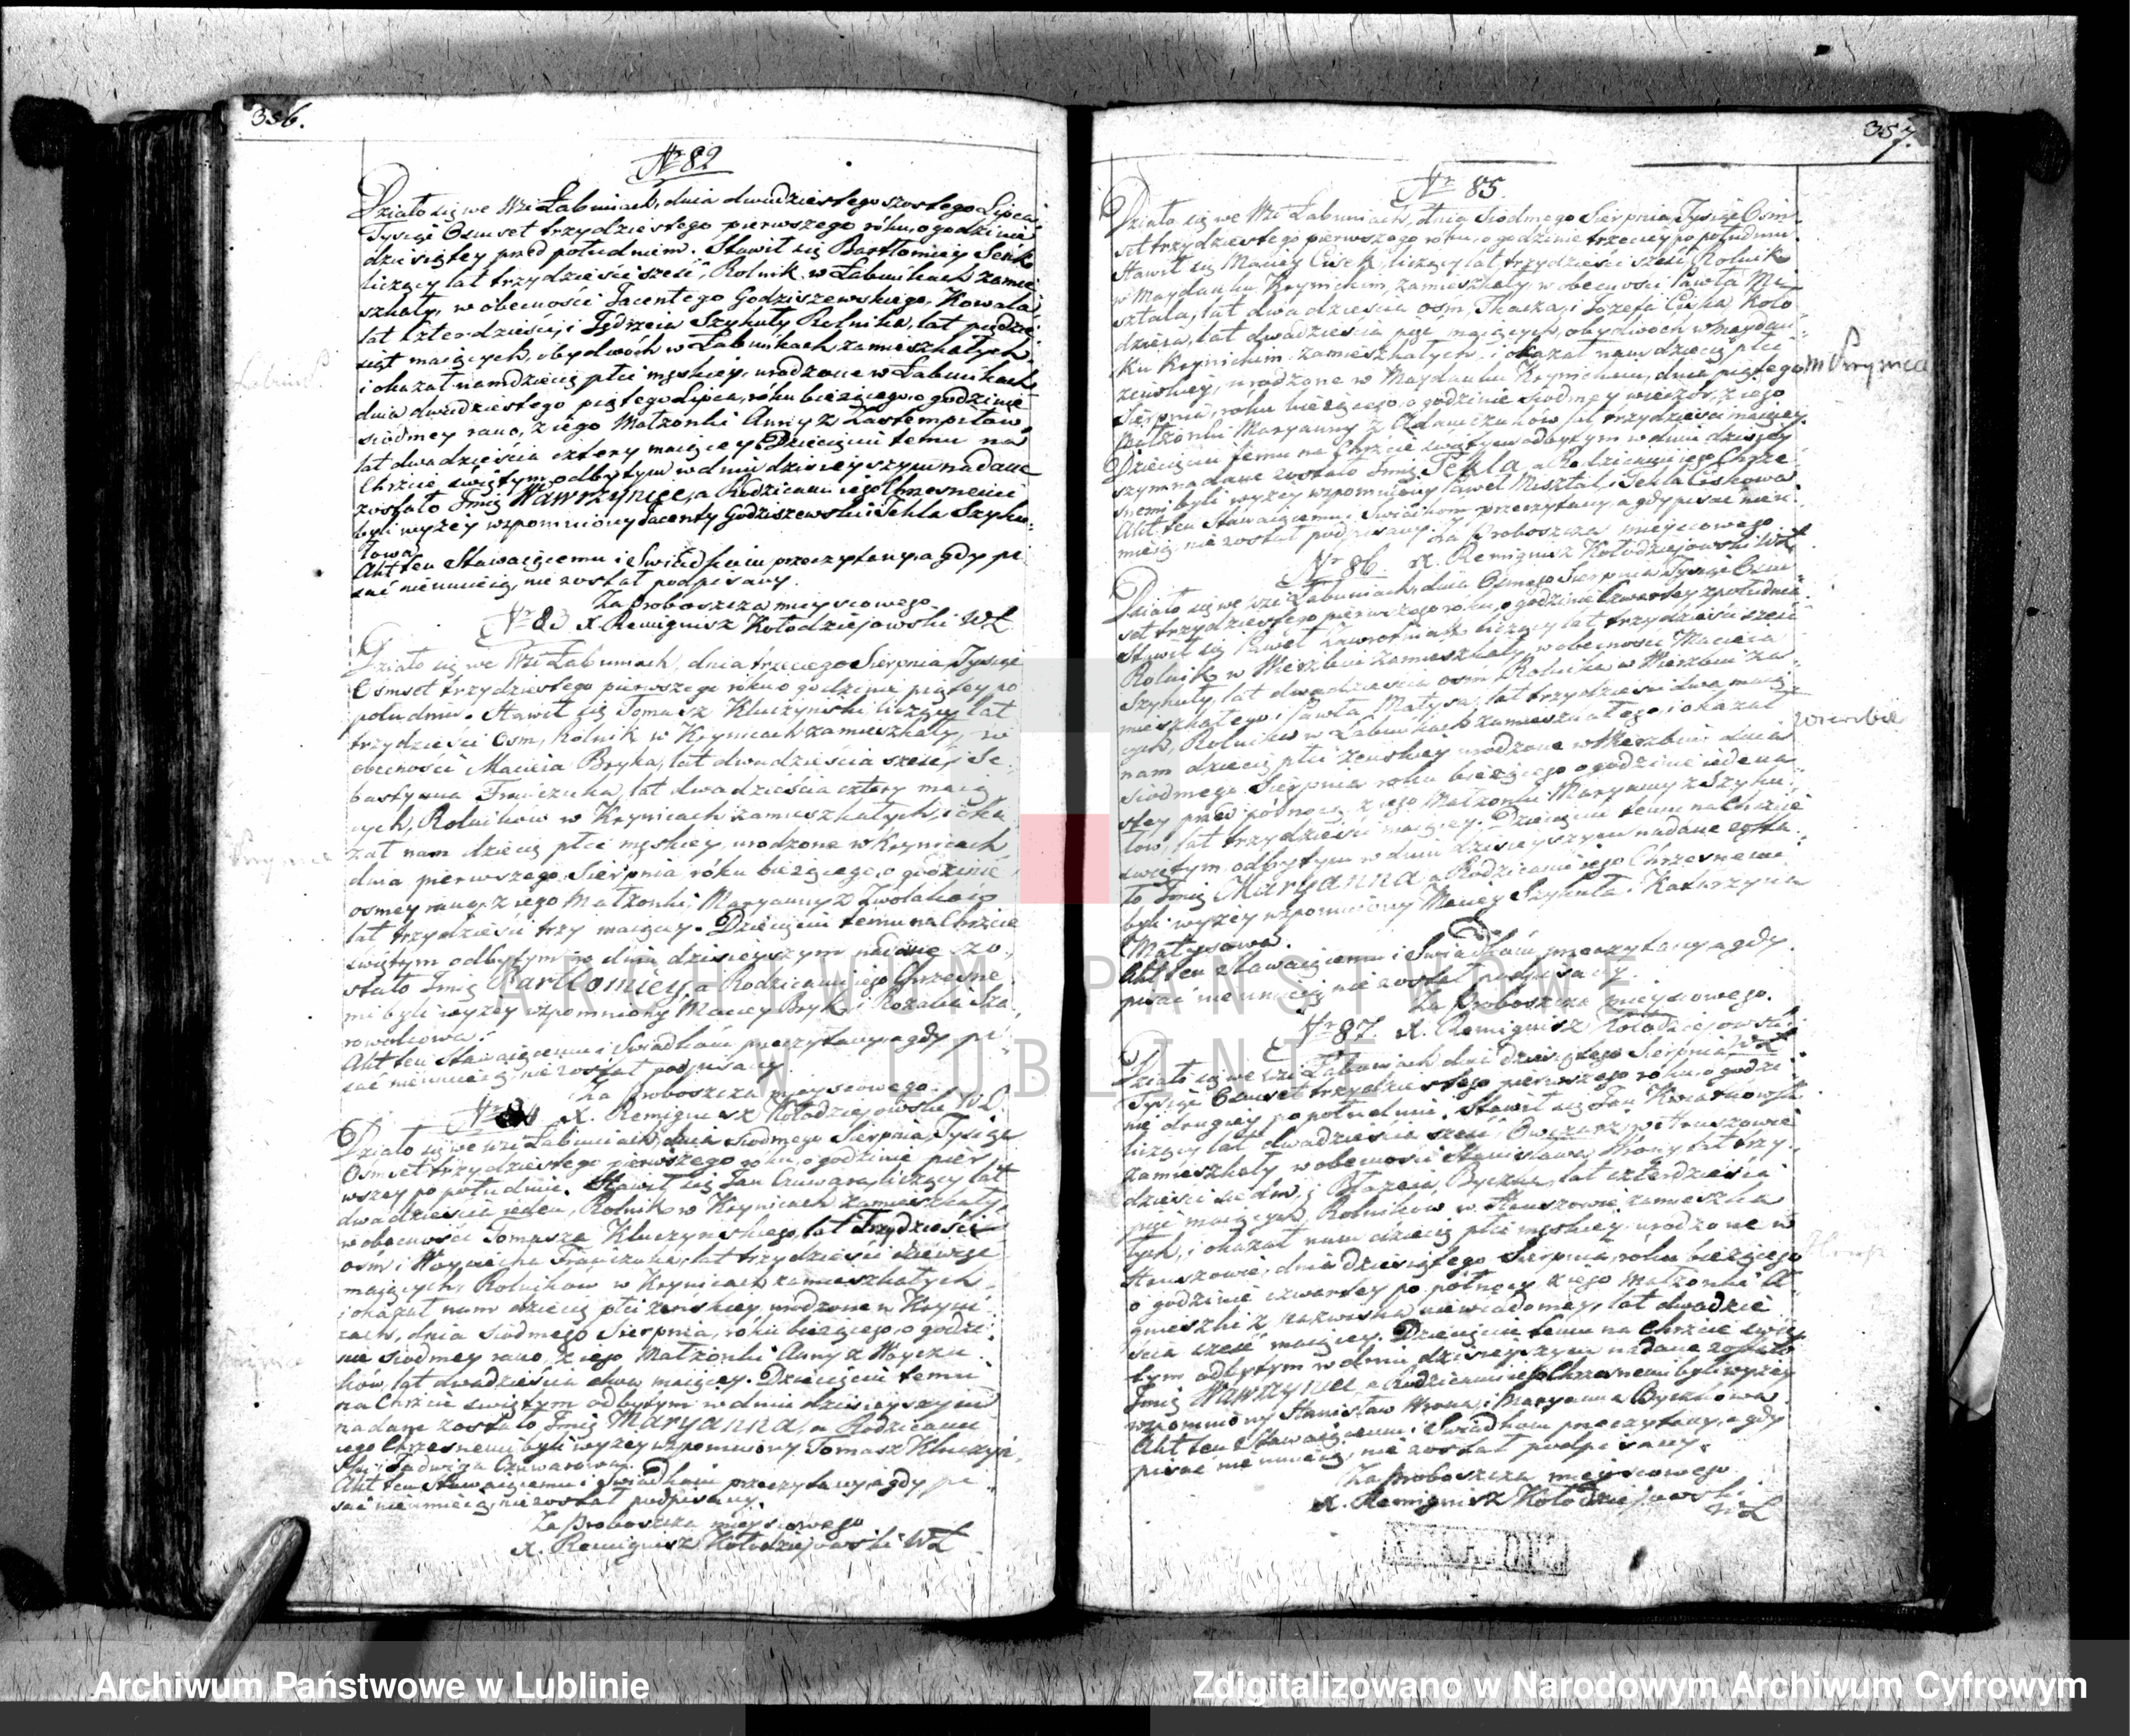 356.
Nr 82
Działo się we Wsi Łabuniach, dnia dwudziestego szostego Lipca
Tysiąc Osmset trzydziestego pierwszego roku, o godzinie
dziesiątey przed południem. Stawił się Bartłomiey Senk
liczący lat trzydzieści sześć, Rolnik w Łabunkach zamie
szkały, w obecności Jacentego Godziszewskiego, Kowala,
lat czterdzieści, i Jędrzeia Szykuły Rolnika, lat pięćdzie
siąt maiących, obydwóch w Łabunkach zamieszkałych
i okazał nam dziecię płci męskiey, urodzone w Łabunkach
dnia dwudziestego piątego Lipca, roku bieżącego, o godzinie
siodmey rano, z iego Małzonki Anny z
lat dwadzieścia cztery maiącey. Dziecięciu temu na
Chrzcie świętym odbytym w dniu dzisieyszym nadane
zostało Imię Wawrzyniec, a Rodzicami iego Chrzesnemi
byli wyżey wzpomniony Jacenty Godziszewski i Tekla Szyku-
łowa
Akt ten Stawaiącemu i Swiadkom przeczytany, a gdy pi
sać nieumieią, nie został podpisany.
Za Proboszcza mieyscowego
Nr 83 X. Remigiusz Kołodziejowski WŁ
Działo się we Wsi Łabuniach, dnia trzeciego Sierpnia, Tysiąc
Osmset trzydziestego pierwszego roku o godzinie piątey po
południu. Stawił się Tomasz Kluczyński liczący lat
trzydzieści Osm, Rolnik w Krynicach zamieszkały, w
obecności Macieia Bryka, lat dwadzieścia sześć, i Se-
bastyana Franczuka, lat dwadzieścia cztery maią
cych, Rolników w Krynicach zamieszkałych, i oka
zał nam dziecię płci męskiey, urodzone w Krynicach
dnia pierwszego Sierpnia roku bieżącego, o godzinie
osmey rano, z iego Małzonki Maryanny z Zwolaków
lat trzydzieści trzy maiącey. Dziecięciu temu na Chrzcie
świętym odbytym w dniu dzisieyszym nadane zo-
stało Imię Bartłomiey, a Rodzicami iego Chrzesne-
mi byli wyżey wzpomniony Maciey Bryk i Rozalia
Akt ten Stawaiącemu i Swiadkom przeczytany a gdy pi-
sać nieumieią, nie został podpisany
Za Proboszcza mieyscowego.
Nr 84 X. Remigiusz Kołodziejowski WŁ.
Działo się we Wsi Łabuniach, dnia siodmego Sierpnia, Tysiąc
Osmset trzydziestego pierwszego roku, o godzinie pier-
wszey po południu. Stawił się Jan Czuwara, liczący lat
dwadzieścia ieden, Rolnik w Krynicach zamieszkały,
w obecności Tomasza Kluczynskiego, lat Trzydzieści
ośm i Woyciecha Franczuka, lat trzydzieści dziewięć
maiących, Rolnikow w Krynicach zamieszkałych,
i okazał nam dziecię płci żeńskiey, urodzone w Kryni-
cach, dnia siodmego Sierpnia, roku bieżącego, o godzi-
nie siodmey rano, z iego Małzonki Anny z Woyciu-
ków, lat dwadzieścia dwa maiącey. Dziecięciu temu
na Chrzcie świętym odbytym w dniu dzisieyszym
nadane zostało Imię Maryanna, a Rodzicami
iego Chrzesnemi byli wyżey wzpomniony Tomasz Kluczyń-
ski i Jadwiga Czuwarowa.
Akt ten Stawaiącemu i Swiadkom przeczytany a gdy pi-
sać nieumieią, nie został podpisany.
Za Proboszcza mieyscowego
X. Remigiusz Kołodziejowski WŁ
357.
Nr 85
Działo się we Wsi Łabuniach, dnia Siodmego Sierpnia, Tysiąc Osm-
set trzydziestego pierwszego roku, o godzinie trzeciey po południu.
Stawił się Maciey Cisek, liczący lat trzydzieści sześć, Rolnik
w Maydanku Krynickim zamieszkały, w obecności Pawła Mi-
sztala, lat dwadzieścia ośm, Tkacza, i Józefa Ciska Koło
dzieia, lat dwadzieścia pięć maiących, obydwóch w Maydan-
ku Krynickim zamieszkałych, i okazał nam dziecię płci
żeńskiey, urodzone w Maydanku Krynickim, dnia piątego
Sierpnia, roku bieżącego, o godzinie siodmey wieczor, z iego
Małżonki Maryanny z Adamczuków lat trzydzieści maiącey.
Dziecięciu temu na Chrzcie świętym odbytym w dniu dzisiey
szym nadane zostało Imię Tekla, a Rodzicami iego Chrze-
snemi byli wyżey wzpomniony Paweł Misztal i Tekla Ciskowa
Akt ten Stawaiącemu i Swiadkom przeczytany, a gdy pisać nieu-
mieią, nie został podpisany. Za Proboszcza mieyscowego
Nr 86. X. Remigiusz Kołodziejowski WŁ
Działo się we Wsi Łabuniach, dnia Osmego Sierpnia Tysiąc Osm-
set trzydziestego pierwszego roku, o godzinie Czwartey z południa.
Stawił się Paweł liczący lat trzydzieści sześć
Rolnik w Wierzbiu zamieszkały, w obecności Macieia
Szykuły, lat dwadzieścia osm Rolnika w Wierzbiu za-
mieszkałego i Pawła Matysa, lat trzydzieści dwa maią-
cych, Rolnika w Łabunkach zamieszkałego, i okazał
nam dziecię płci żeńskiey urodzone w Wierzbiu dnia
Siodmego Sierpnia roku bieżącego o godzinie iedena-
stey przed północą, z iego Małzonki Maryanny z Szyku-
łow, lat trzydzieści maiącey. Dziecięciu temu na Chrzcie
świętym odbytym w dniu dzisieyszym nadane zosta-
ło Imię Maryanna a Rodzicami iego Chrzesnemi
byli wyżey wzpomniony Maciey Szykuła i Katarzyna
Matysowa.
Akt ten Stawaiącemu i Swiadkom przeczytany a gdy
pisać nieumieią nie został podpisany.
Za Proboszcza mieyscowego.
Nr 87. X. Remigiusz Kołodziejowski
WŁ
Działo się we Wsi Łabuniach dnia dziesiątego Sierpnia
Tysiąc Osmset trzydziestego pierwszego roku, o godzi-
nie drugiey po południu. Stawił się Jan Kwiatkowski
liczący lat dwadzieścia sześć, Owczarz, w Hruszowie
zamieszkały, w obecności Stanisława Wrony lat trzy-
dzieści siedm, i Błazeia Byczka, lat czterdzieścia
pięć maiących Rolników w Hruszowie zamieszka
łych, i okazał nam dziecię płci męskiey, urodzone w
Hruszowie, dnia dziesiątego Sierpnia, roku bieżącego
o godzinie czwartey po północy z iego Małzonki A-
gnieszki z nazwiska niewiadomey, lat dwadzie
ścia sześć maiącey. Dziecięciu temu na Chrzcie świę-
tym odbytym w dniu dzisieyszym nadane zostało
Imię Wawrzyniec, a Rodzicami iego Chrzesnemi byli wyżey
wzpomniony Stanisław Wrona, i Maryanna Byczkowa
Akt ten Stawaiącemu i Swiadkom przeczytany, a gdy
pisać nieumieią, nie został podpisany.
Za Proboszcza mieyscowego
X. Remigiusz Kołodziejowski
WŁ
ARCHIWUM PAŃSTWOWE
W LUBLINIE
Archiwum Państwowe w Lublinie
Zdigitalizowano w Narodowym Archiwum Cyfrowym